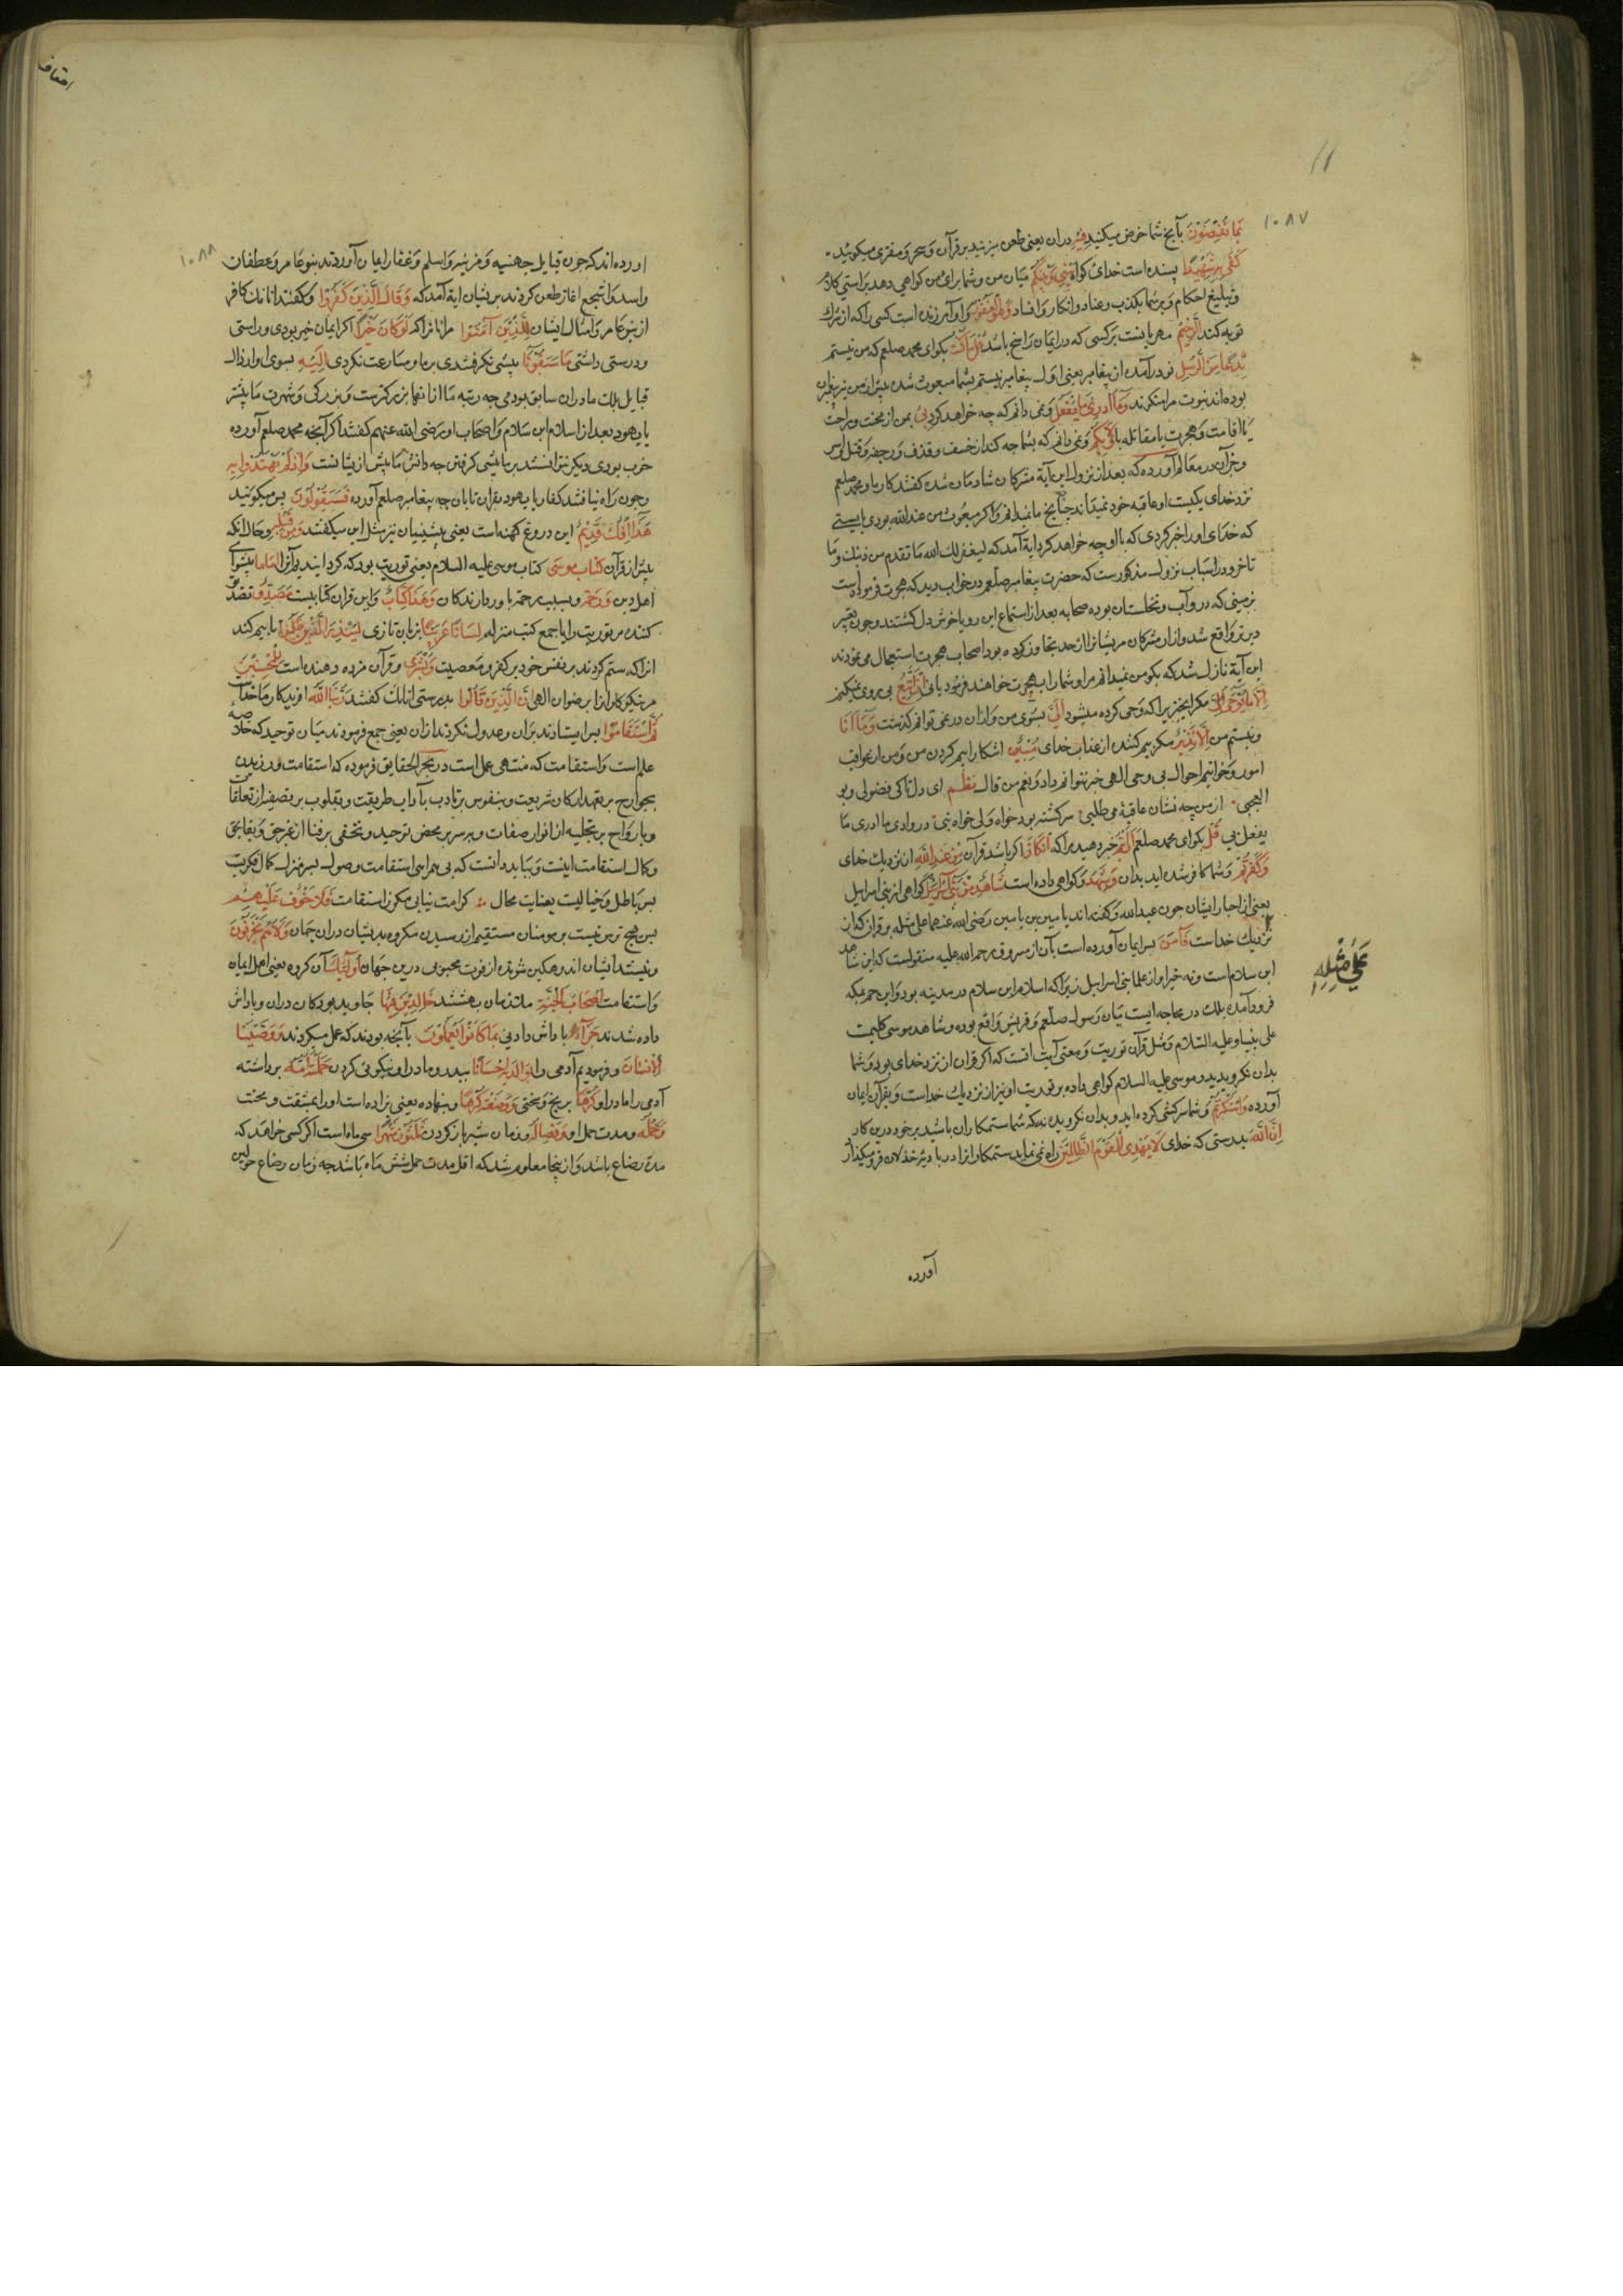 ١٠٨٧
بما تفیضون بآنچ شما خوض میکنید فیه دران یعنی طعن میزنید بر قرآن و سحر و مفتری میکوئید
کفی به شهیدا پسنده است خدای کواه بینی و بینکم میان من و شما برای من کواهی دهد براستی کلام
و تبلیغ احکام و بر شما بکذب و عناد و انکار و افساد و هو الغفور و او آمرزنده است کسی را که از شرک
توبه کند الرحیم مهربانست بر کسی که در ایمان راسخ باشد قل ما کنت بکو ای محمد صلعم که من نیستم
بدعا من الرسل نو درآمده از پیغامبر یعنی اول پیغامبر نیستم بشما مبعوث شده پیش از من نیز پیغامبران
بوده اند نبوت مرا منکرند و ما ادری ما یفعل و نمی دانم که چه خواهد کرد بی بمن از محنت و راحت
یا اقامت و هجرت یا مقاتله یا ولا بکم و نمی دانم که بشما چه کند از خسف و قذف و رجفه و قتل و اسر
و در معالم آورده که بعد از نزول این آیة مشرکان شادمان شدند کفتند کار ما و محمد صلعم
نزد خدای یکیست او عاقبه خود نمیداند چنانچ ما نمیدانم و اکر مبعوث من عند الله بودی بایستی
که خدای او را خبر کردی که با او چه خواهد کرد ایة آمد که لیغفر لک الله ما تقدم من ذنبک و ما
تاخر و در اسباب نزول مذکورست که حضرت پیغامبر صلعم در خواب دید که هجرت فرموده است
بزمینی که درو آب و نخلستان بوده صحابه بعد از استماع این رویا خوش دل کشتند و چون تعبیر
دیرتر واقع شد و آزار مشرکان مریشانرا از حد تجاوز کرده بود اصحاب هجرت استعجال می نمودند
این آیة نازل شد که بکو من نمیدانم مرا و شما را بهجرت خواهند فرمود یا نی ان اتبع پی روی نمیکنم
الا ما یوحی مکر انچیزیرا که وحی کرده میشود الی بسوی من و ازان در نمی توانم کذشت و ما انا
و نیستم من الا نذیر مکر بیم کننده از عذاب خدای مبین اشکارا بیم کردن من و من از عواقب
امور و خواتیم احوال بی وحی الهی خبر نتوانم داد و نعم من قال نظم ای دل تا کی فضولی و بو
العجبی از من چه نشان عاقبة می طلبی سرکشته بود خواه ولی خواه نبی در وادی ما ادری ما
یفعل بی قل بکو ای محمد صلعم ارایتم خبر دهید مرا که ان کان اکر باشد قرآن من عند الله از نزدیک خدای
و کفرتم و شما کافر شده اید بدان و شهد و کواهی داده است شاهد من بنی اسرائیل کواهی از بنی اسرایل
یعنی از احبار ایشان چون عبد الله و کفته اند یا میین بن یامین رضی الله عنهما علی مثله بر قران کان
نزدیک خداست فآمن پس ایمان آورده است بآن از مسروق رحمه الله علیه منقولست که این شاهد
علی مثله
ابن سلام است و نه خبر او از علما بنی اسرایل زیرا که اسلام ابن سلام در مدینه بود و این حم بمکه
فرود آمده بلک در محاجه ایست میان رسول صلعم و قریش واقع بوده و شاهد موسی کلیمست
علی نبینا و علیه السلام و مثل قرآن توریت و معنی آیت انست که اکر قران از نزد خدای بود و شما
بدان نکرویدید و موسی علیه السلام کواهی داده بر توریت او نیز از نزدیک خداست و بقرآن ایمان
آورده و استکبرتم و شما سرکشی کرده اید و بدان نکرویده نه که شما ستمکاران باشید بر خود درین کار
ان الله بدرستی که خدای لا یهدی القوم الظالمین راه نمی نماید ستمکارانرا در بادیه خذلان فرو میکذارد
آورده
احقاف
١٠٨٨
اورده اند که چون قبایل جهنیه و مزنیه و اسلم و غفار ایمان آوردند بنو عامر و غطفان
و اسد و اشجع اغاز طعن کردند بریشان ایة آمد که و قال الذین کفروا و کفتند انانکه کافر
از بنو عامر و امثال ایشان للذین آمنوا مرانانرا که لو کان خیرا اکر ایمان خیر بودی و راستی
و درستی داشتی ما سبقونا پیشی نکرفتندی برما و مسارعت نکردی الیه بسوی او ارذال
قبایل بلک ما دران سابق بودمی چه رتبه ما از انها بزرکترست و بزرکی و شهرت ما بیشتر
یا یهود بعد از اسلام ابن سلام و اصحاب او رضی الله عنهم کفتند اکر آنچه محمد صلعم آورده
خوب بودی دیکر نتوانستند بر ما پیشی کرفتن چه دانش ما بیش از یشانست و اذ لم یهتدوا به
و چون راه نیافتند کفار یا یهود بقران تا بان چه پیغامبر صلعم آورده فسیقولون پس میکویند
هذا افک قدیم این دروغ کهنه است یعنی پیشینیان نیز مثل این میکفتند و من قبله و حال انکه
پیش از قرآن کتاب موسی کتاب موسی علیه السلام یعنی توریت بود که کردانیدیم آنرا اماما پیشوای
اهل دین و رحمة و سبب رحمة باوردارندکان و هذا کتاب و این قران کتابیست مصدق تصدیق
کننده مر توریت را یا جمع کتب منزله لسانا عربیا بزبان تازی لینذر الذین ظلموا تا بیم کند
انرا که ستم کردند بر نفس خود بر کفر و معصیت و بشری و قرآن مژده دهنده است للمحسنین
مر نیکوکارانرا برضوان الهی ان الذین قالوا بدرستی انانک کفتند ربنا الله افریدکار ما خدای
ثم استقاموا پس ایستادند بران و عدول نکردند ازان یعنی جمع فرمودند میان توحید که خلاصه
علم است و استقامت که منتهی عمل است در بحر الحقایق فرموده که استقامت ورزیدن
بجوارح بر تمهید ارکان شریعت و بنفوس بر تادب بآداب طریقت و بقلوب بر تصفیه از تعلقات
و بارواح بر تجلیه از انوار صفات و بسر بر محض توحید و بخفی بر فنا از غیر حق و بقا بحق
و کمال استقامت اینست و بباید دانست که بی همراهی استقامت وصول بسر منزل کمال قربت
پس باطل و خیالیست بغایت محال کرامت نیابی مکر از استقامت فلا خوف علیهم
پس هیچ ترس نیست بر مومنان مستقیم از رسیدن مکروه بدیشان دران جهان ولا هم یحزنون
و نیستند ایشان اندوهکین شونده از فوت محبوبی درین جهان اولئک آن کروه یعنی اهل ایمان
و استقامت اصحاب الجنة ملازمان بهشتند خالدین فیها جاوید بودکان دران و پاداش
داده شدند جزاء پاداش دادنی بما کانوا یعملون بآنچه بودند که عمل میکردند و وصینا
الانسان و فرمودیم آدمی را بوالدیه احسانا بپدر و مادر او نیکویی کردن حملته امه برداشته
آدمی را مادر او کرها برنج و سختی و وضعته کرها و بنهاده یعنی بزاده است او را بمشقت و محنت
و حمله و مدت حمل او و فصاله و زمان شیر باز کردن ثلثون شهرا سی ماه است اکر کسی خواهد که
مدة رضاع باشد و از ینجا معلوم شد که اقل مدت حمل شش ماه باشد چه زمان رضاع حولین